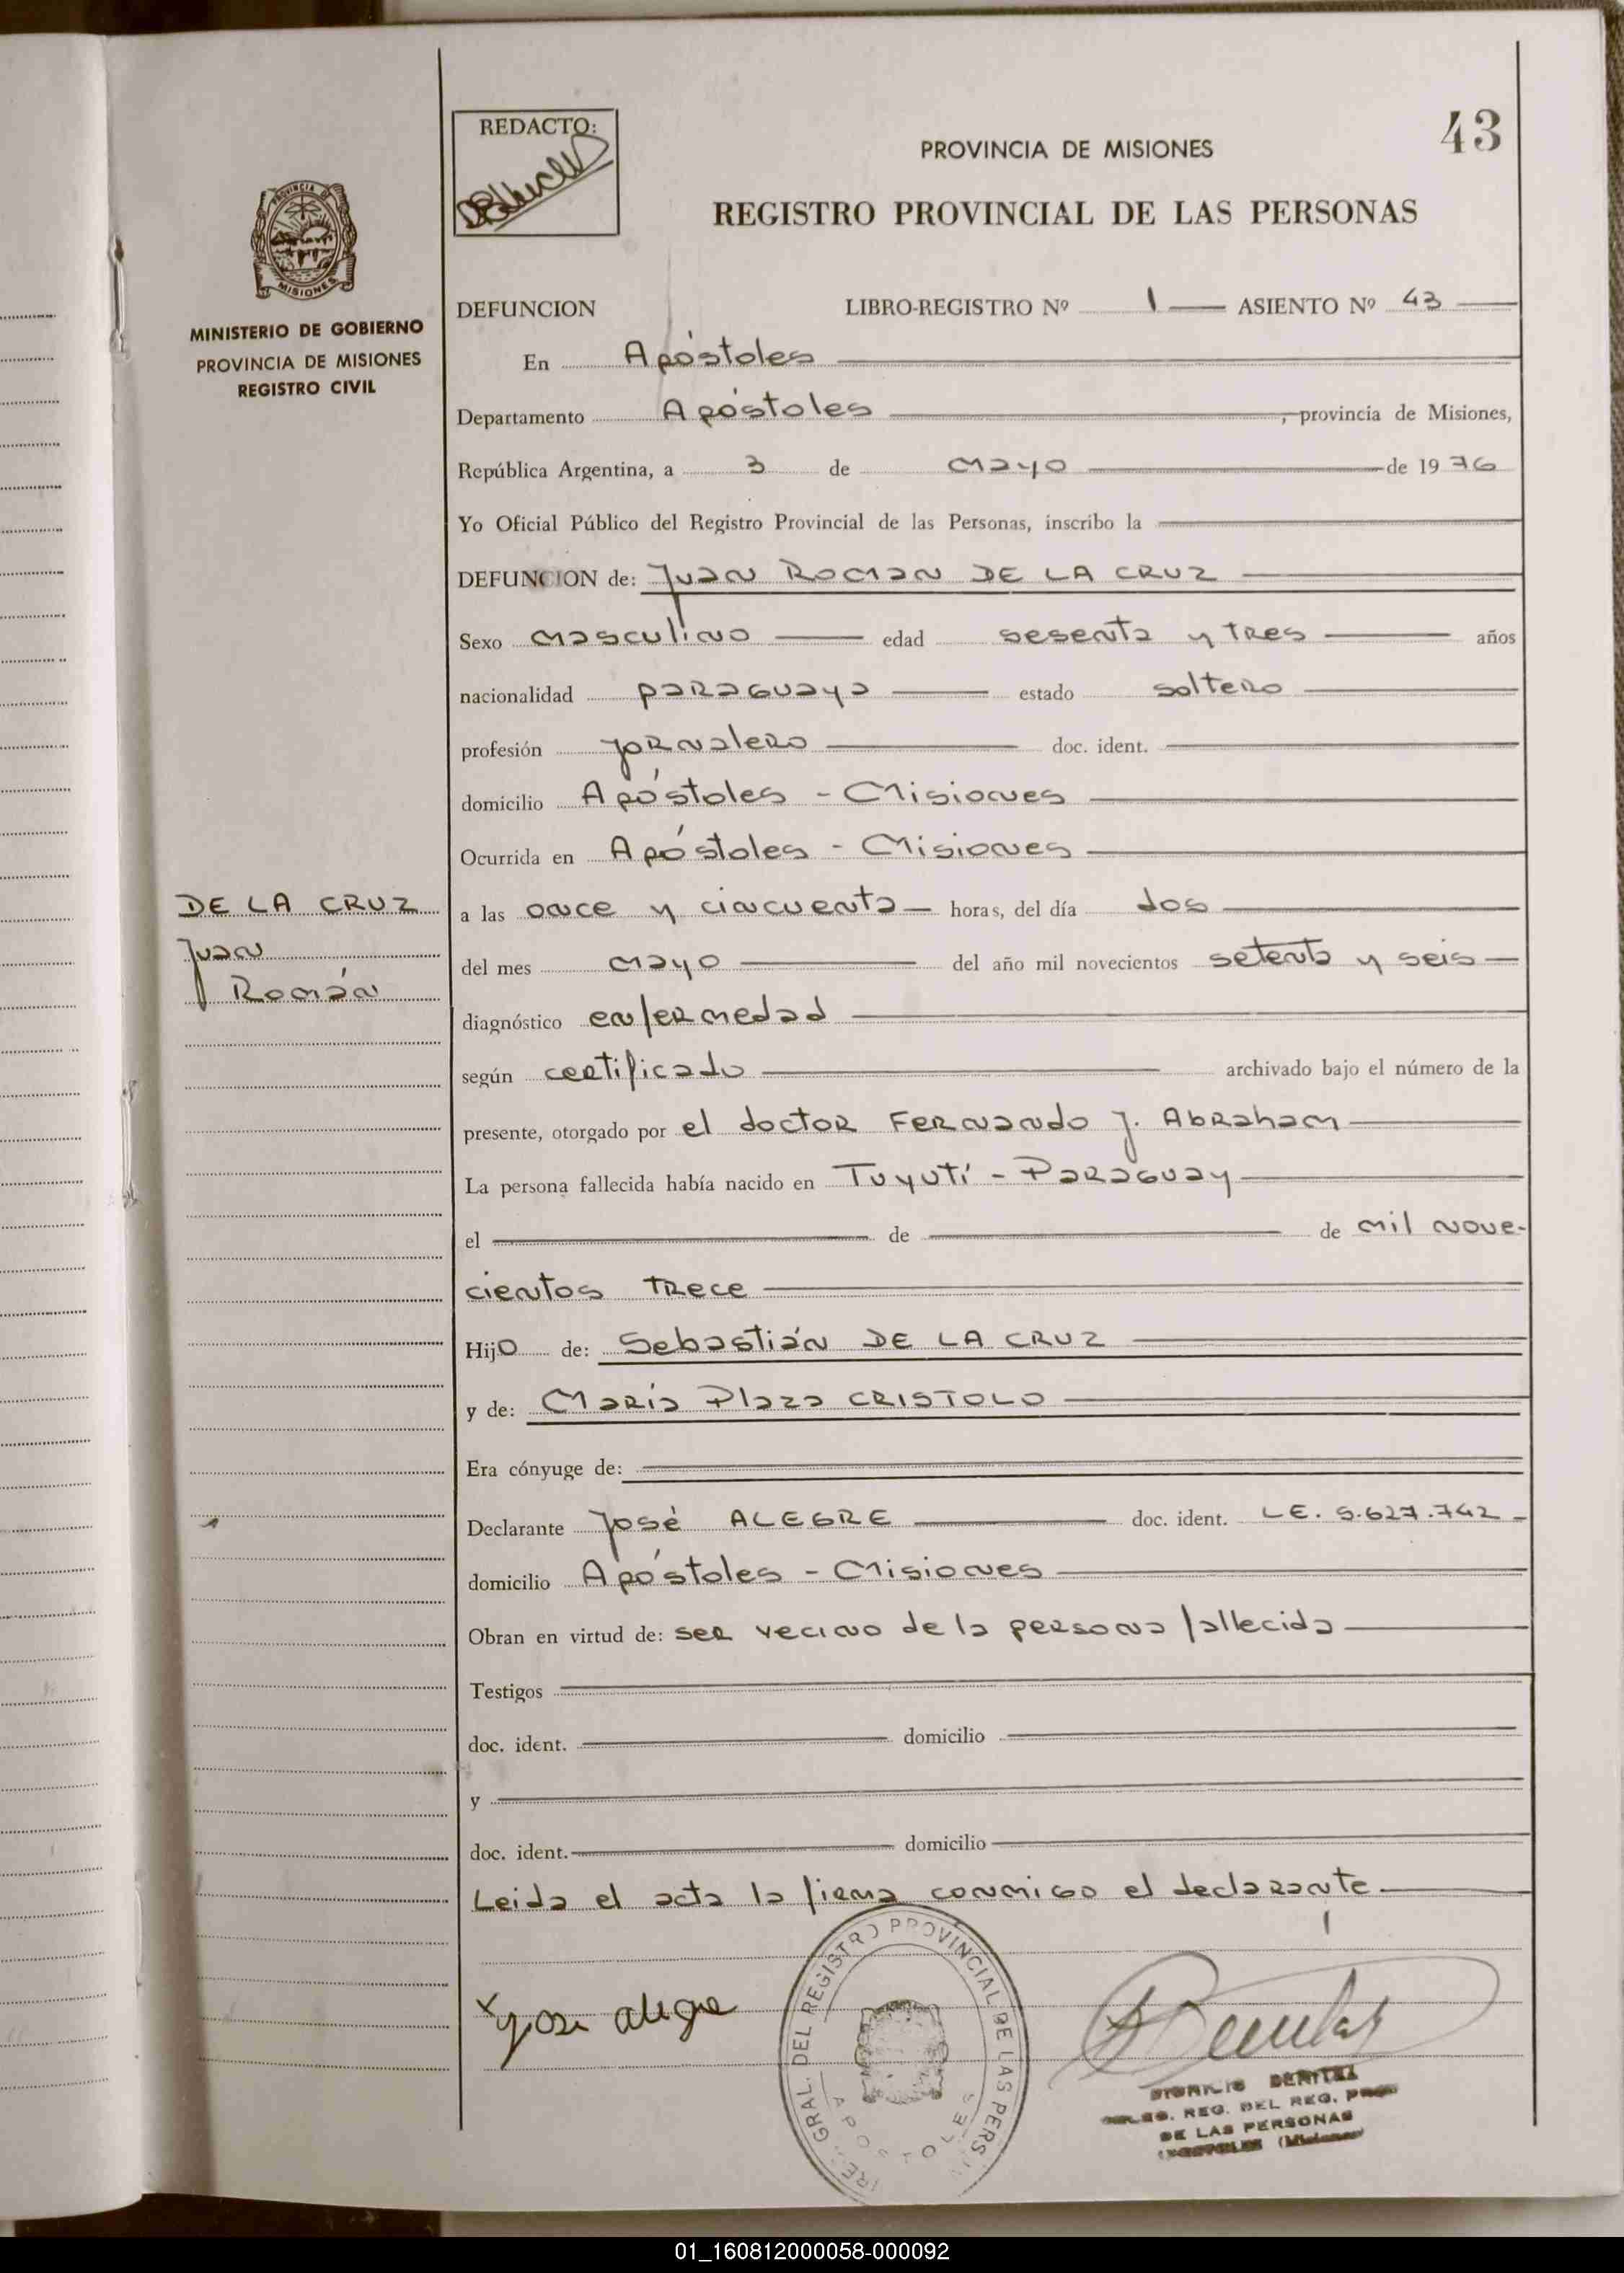 REDACTO:
43
PROVINCIA DE MISIONES
REGISTRO PROVINCIAL DE LAS PERSONAS
PROVINCIA DE
MISIONES
MINISTERIO DE GOBIERNO
PROVINCIA DE MISIONES
REGISTRO CIVIL
DEFUNCION LIBRO-REGISTRO Nº 1 ASIENTO Nº 43
En Apóstoles
Departamento Apóstoles, provincia de Misiones,
República Argentina, a 3 de mayo de 1976
Yo Oficial Público del Registro Provincial de las Personas, inscribo la
DEFUNCION de: Juan Roman DE LA CRUZ
Sexo masculino edad sesenta y tres años
nacionalidad paraguaya estado soltero
profesión jornalero doc. ident.
domicilio Apóstoles - Misiones
Ocurrida en Apóstoles - Misiones
DE LA CRUZ
Juan
Román
a las once y cincuenta horas, del día dos
del mes mayo del año mil novecientos setenta y seis
diagnóstico enfermedad
según certificado archivado bajo el número de la
presente, otorgado por el doctor Fernando J. Abraham
La persona fallecida había nacido en Tuyutí - Paraguay
el de de mil nove-
cientos trece
Hijo de: Sebastián DE LA CRUZ
y de: María Plaza CRISTOLO
Era cónyuge de:
Declarante José ALEGRE doc. ident. L.E. 5.627.742
domicilio Apóstoles - Misiones
Obran en virtud de: ser vecino de la persona fallecida
Testigos
doc. ident. domicilio
y
doc. ident. domicilio
Leida el acta la firma conmigo el declarante
x Jose alegre
GRAL. DEL REGISTRO PROVINCIAL DE LAS PERS
APOSTOLES
REG. DEL REG.
DE LAS PERSONAS
(Misiones)
01_160812000058-000092